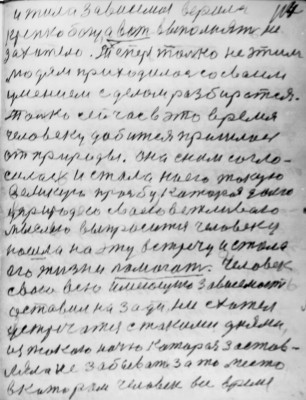 и жила зависимо верила
крепко
захотело. Теперь только не этим
людям приходилось со своим
умением с делом разбираться.
только сейчас в это время
человеку добится пришлось
от природы. она с ним согло-
силась и стала на его такую
великую просьбу которая долго
природою сваловетливаво
мыслию выпросить человеку
пошла на эту встречу и стала
его жизни помогать. Человек
свою всю имеющую зависимость
оставил на зади, не схотел
встречатся с такими днями,
из такою ночью которая застав-
ляла не забывать за то место
в котором человек все время